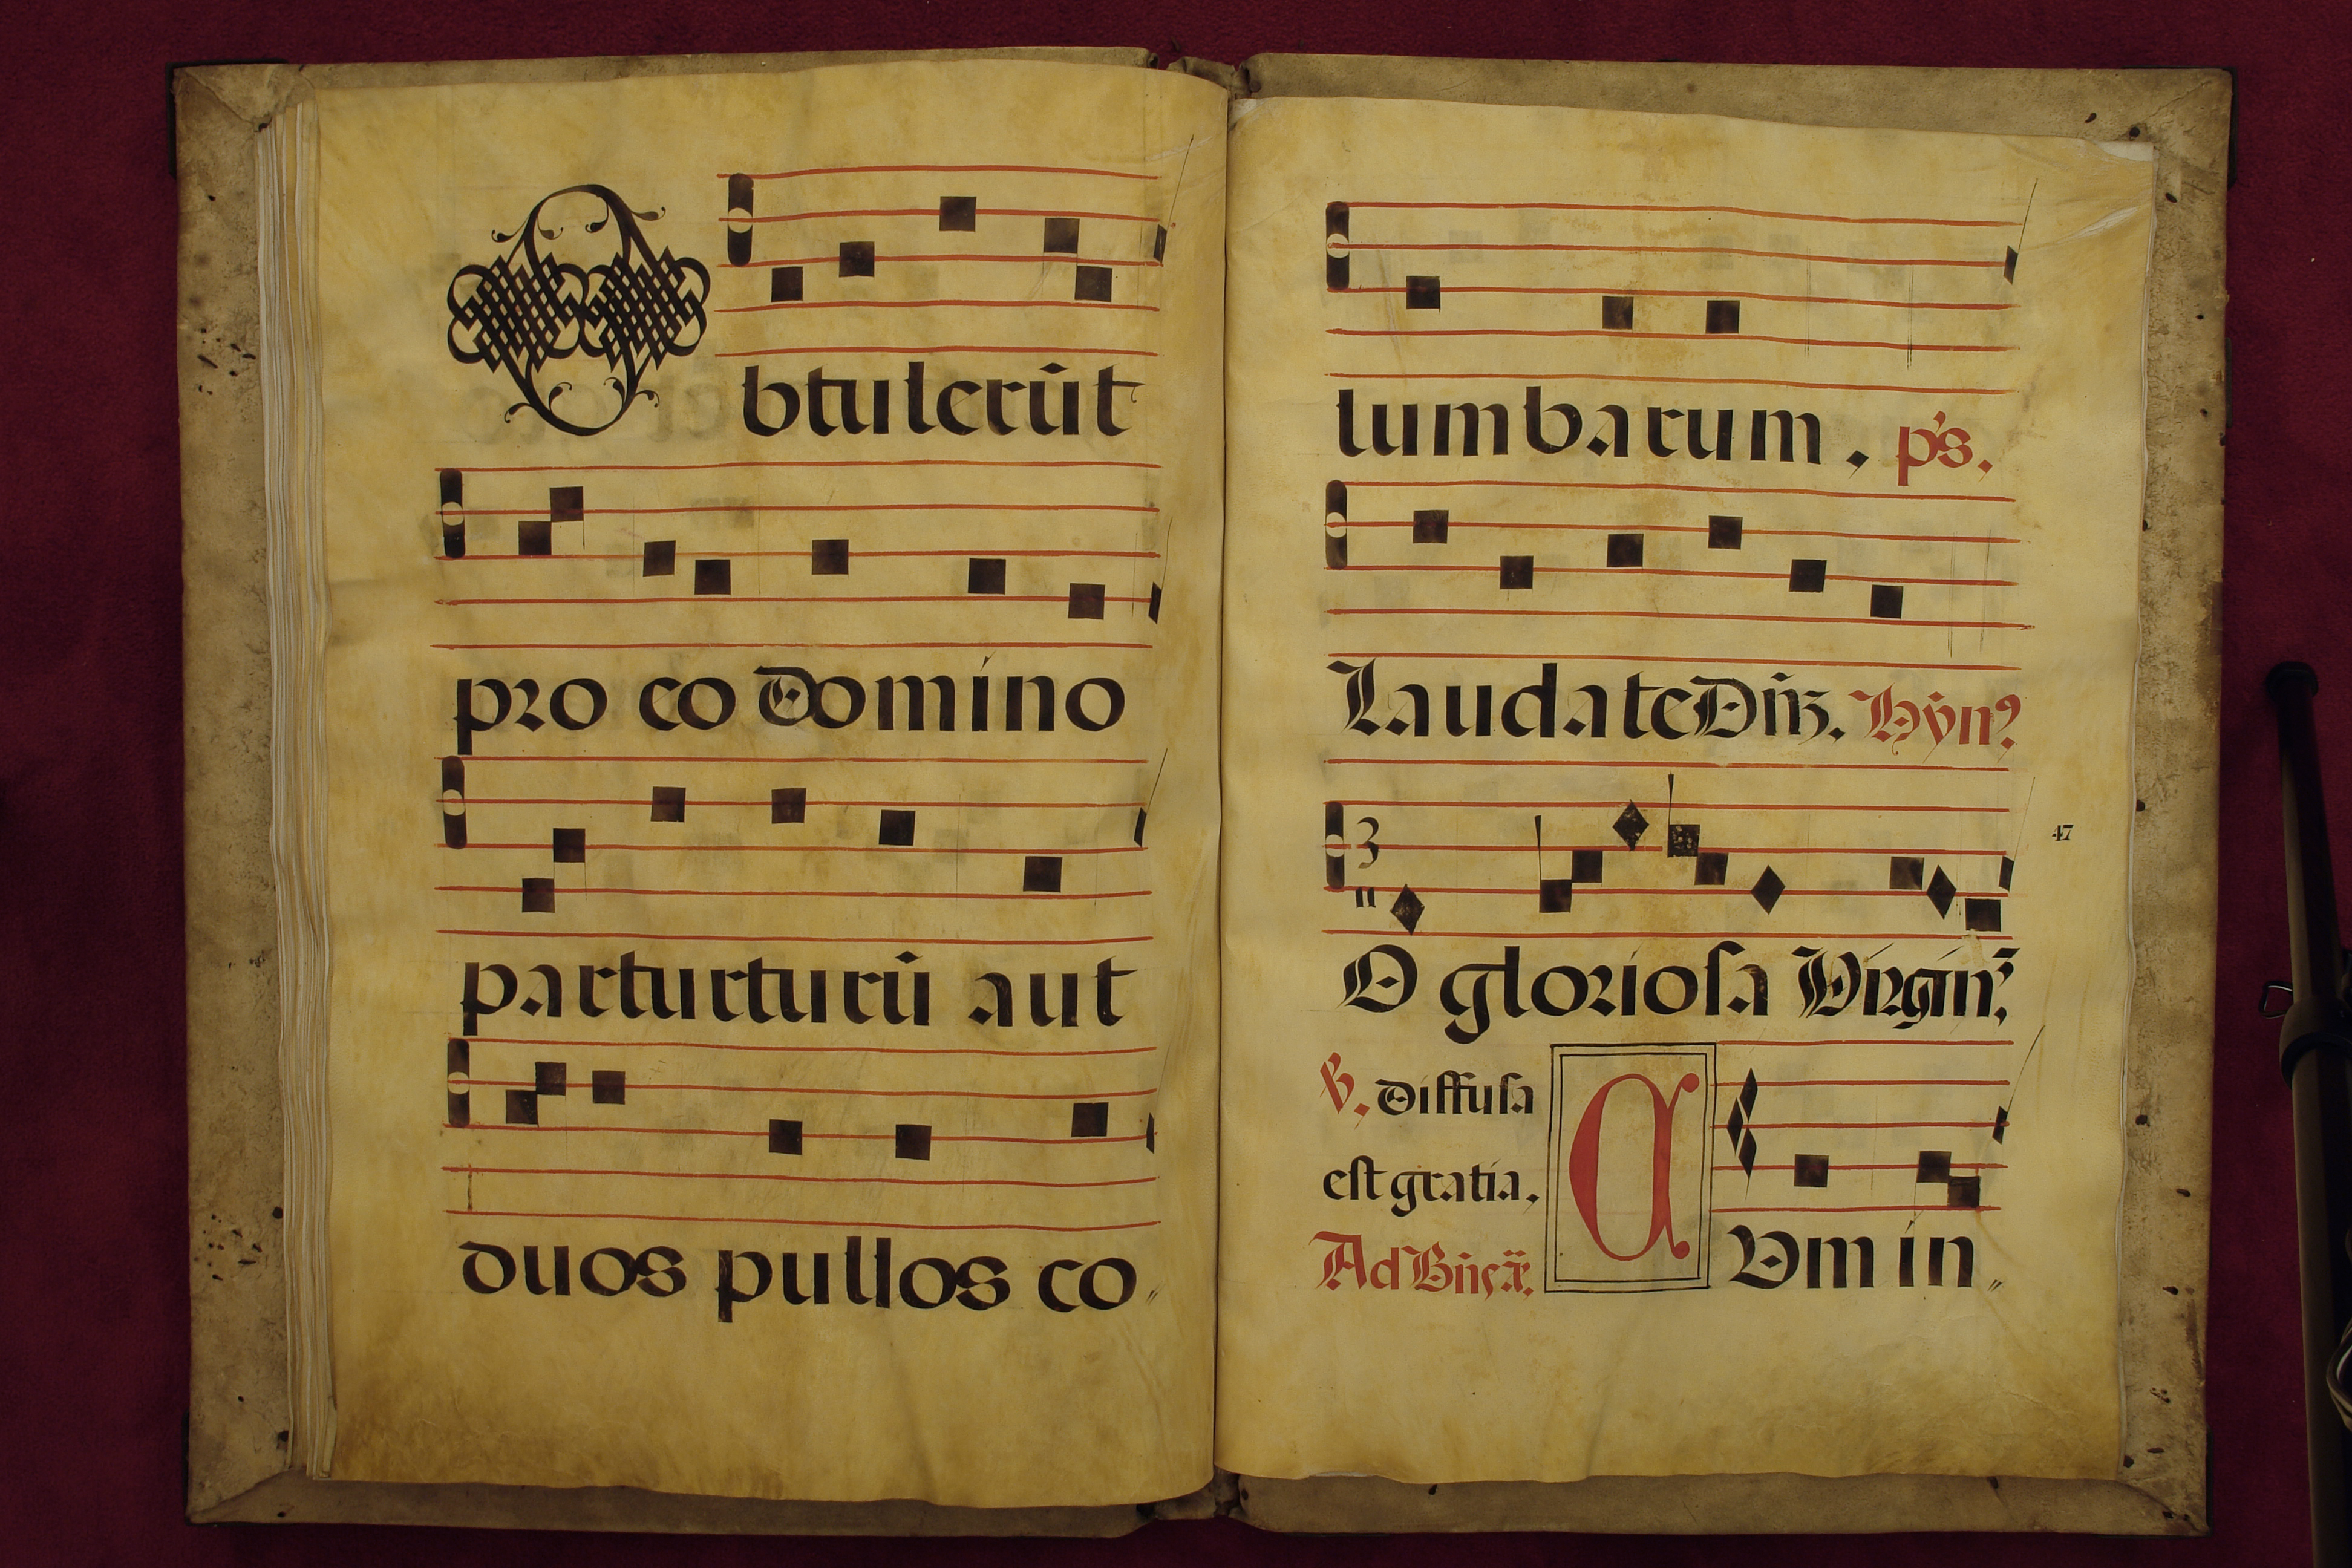 Obtulerût
pro eo domino
parturturû aut
duos pullos co
lumbarum, p's.
Laudate Dñz. Hÿn?
3
O gloriosa Virginz.
47
V. diffusa
est gratia,
Ad Bñcx̃.
CVm in